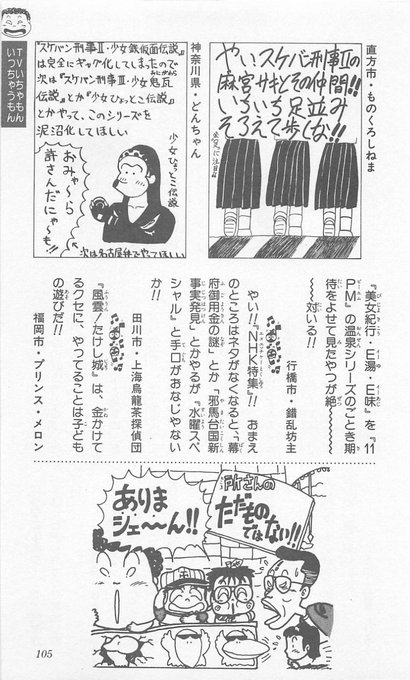 直方市・ものくろしねま
やいスケバン刑事Ⅱの
麻宮サキとその仲間!!
いちいち足並み
そろえて歩くな!!
神奈川県・どんちゃん
『スケバン刑事Ⅱ・少女鉄仮面伝説』
は完全にギャグ化してしまったので
次は『スケバン刑事Ⅲ・少女鬼瓦
伝説』とか『少女ひょっとこ伝説』
とかやって、このシリーズを
泥沼化してほしい
少女ひょっとこ伝説
おみゃ〜ら
許さんだにゃ〜も!!
次は名古屋弁でやってほしい
TVいちゃもん
いっちゃうもん
『美女紀行・E湯・E味』を『11
PM』の温泉シリーズのごとき期
待をよせて見たやつが絶〜〜
対いる!!
行橋市・錯乱坊主
やい!!『NHK特集』!! おまえ
のところはネタがなくなると、『幕
府御用金の謎』とか『邪馬台国新
事実発見』とかやるが『水曜スペ
シャル』と手口がおなじゃない
か!!
田川市・上海烏龍茶探偵団
『風雲!たけし城』は、金かけて
るクセに、やってることは子ども
の遊びだ!!
福岡市・プリンス・メロン
所さんの
ただもの
ではない!!
ありま
シェ〜〜ん!!
105